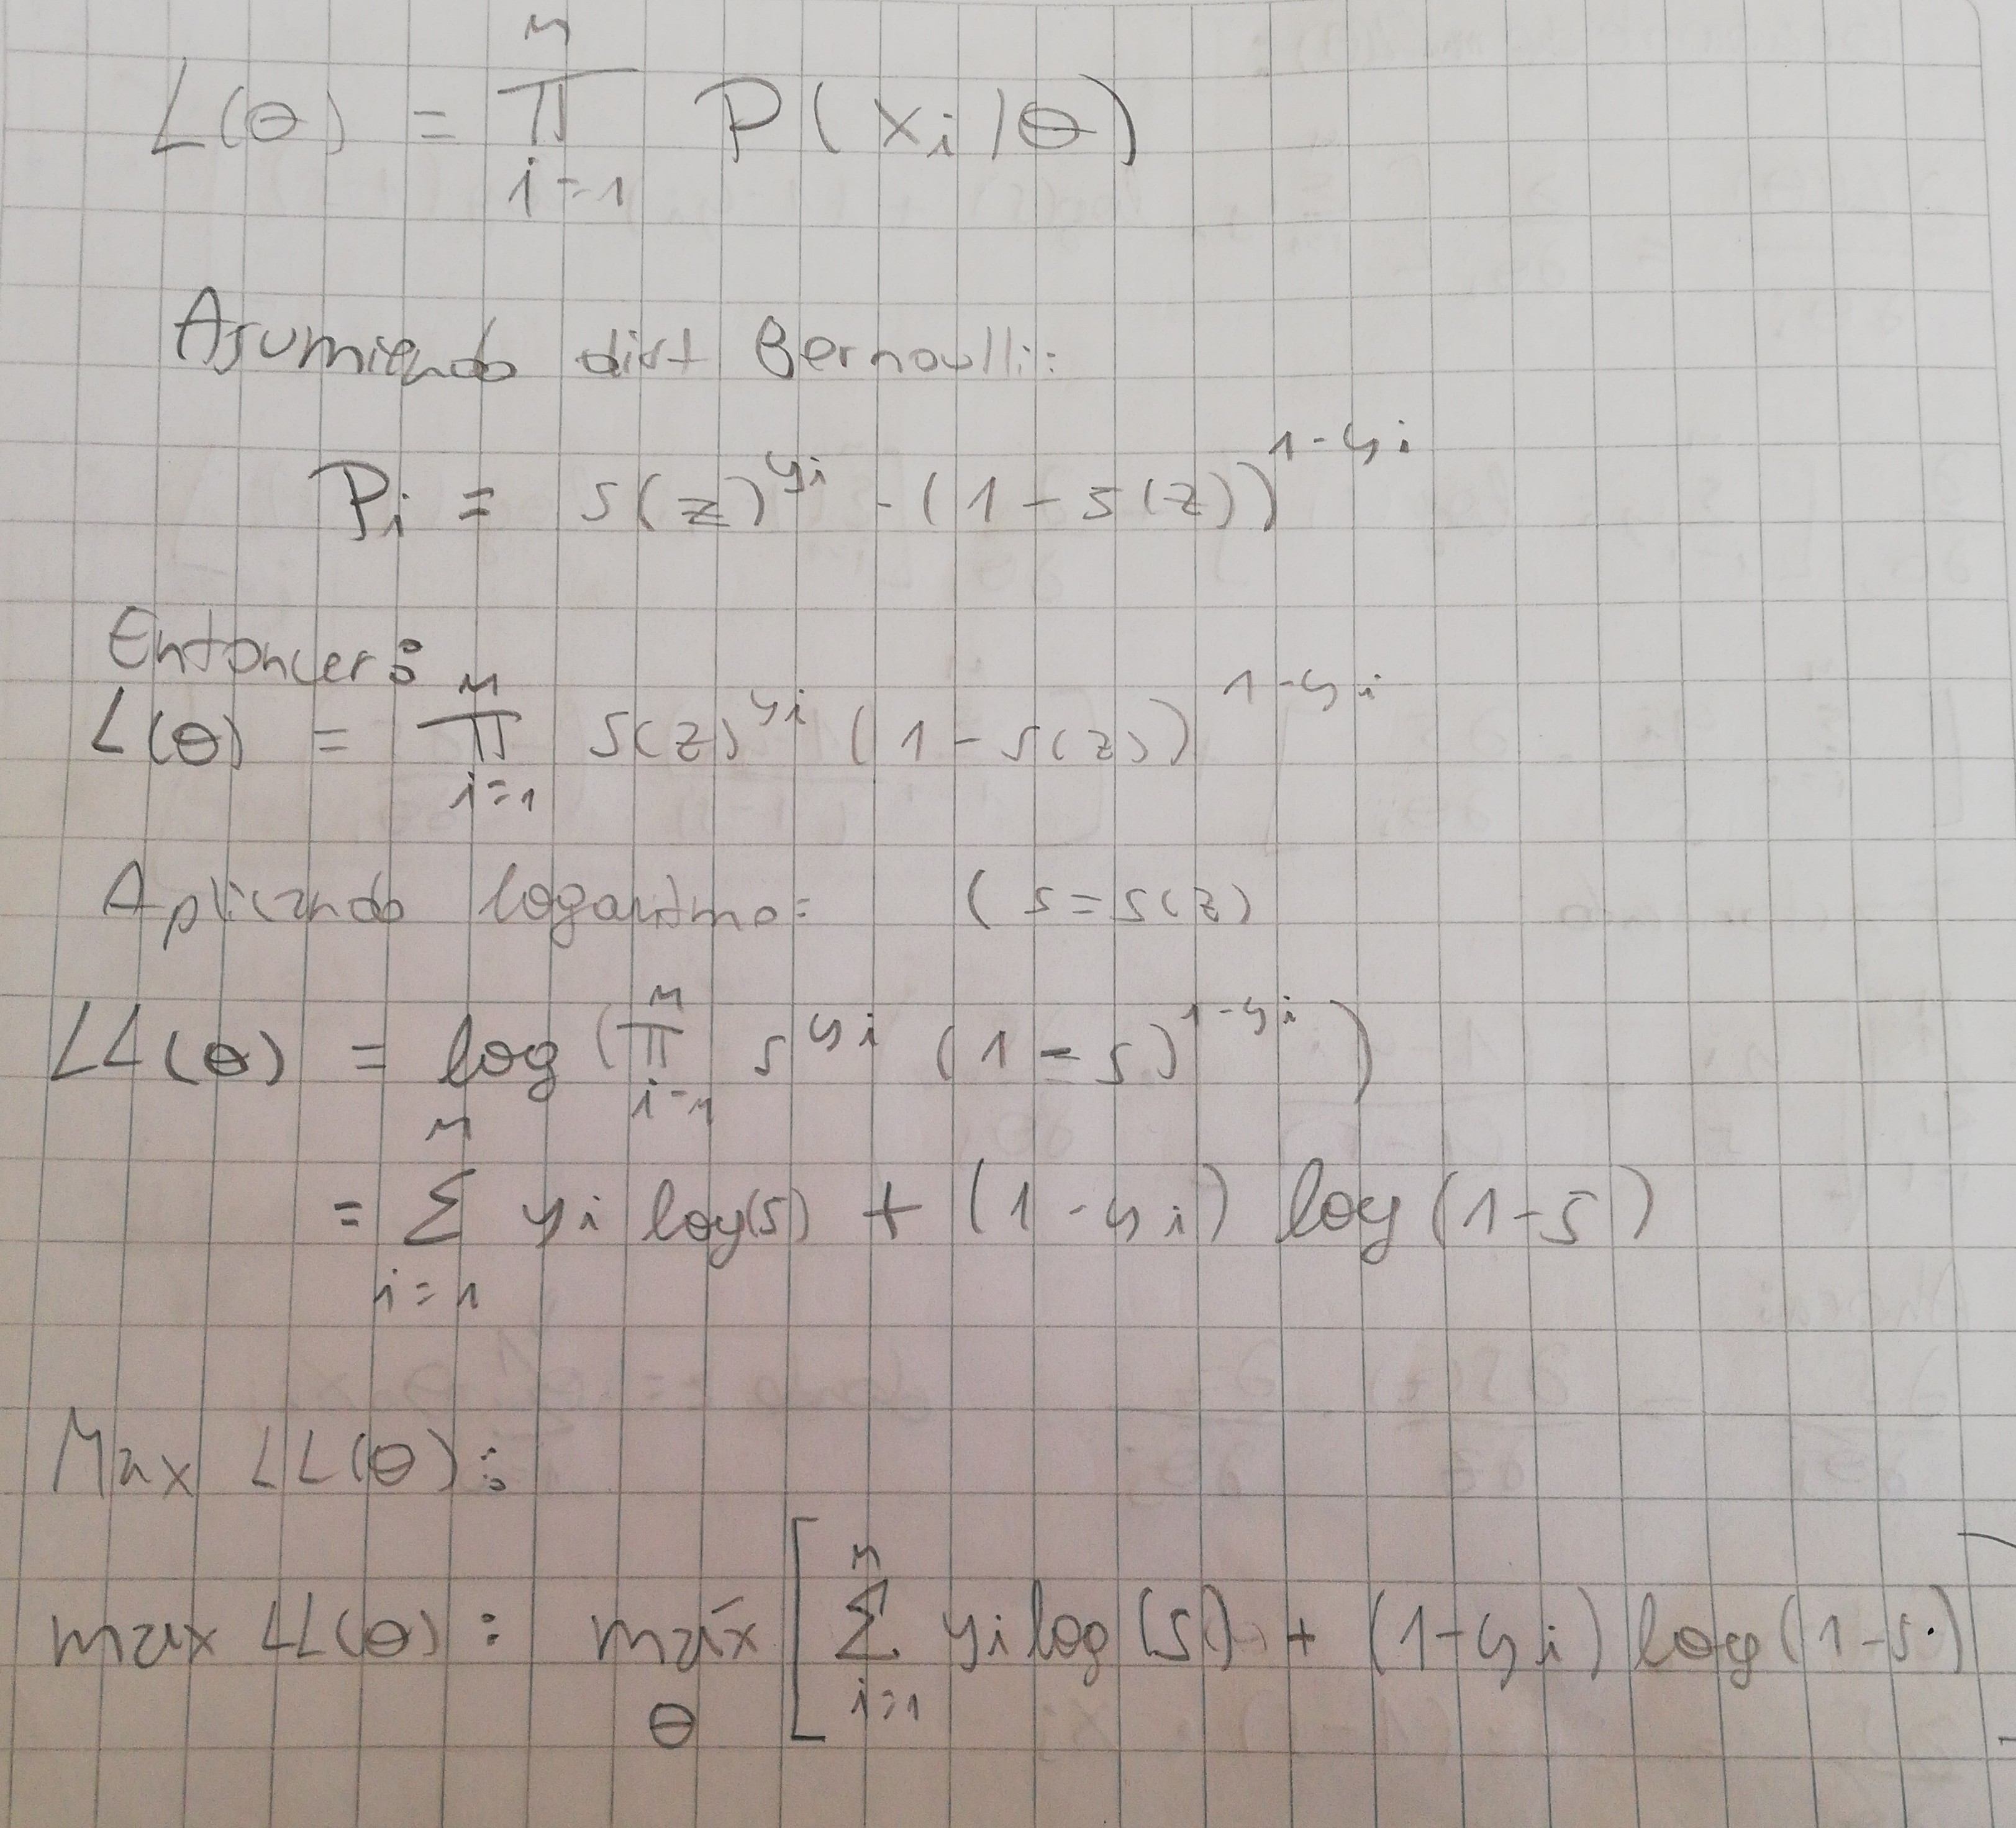 L(θ) = ∏_{i=1}^{n} P(x_i/θ)
Asumiendo dist Bernoulli:
P_i = s(z)^{y_i} · (1 - s(z))^{1-y_i}
Entonces:
L(θ) = ∏_{i=1}^{n} s(z)^{y_i} (1 - s(z))^{1-y_i}
Aplicando logaritmo: (s = s(z)
LL(θ) = log(∏_{i=1}^{n} s^{y_i} (1 - s)^{1-y_i})
= ∑_{i=1}^{n} y_i log(s) + (1 - y_i) log(1 - s)
Max LL(θ):
max LL(θ): máx_θ [∑_{i=1}^{n} y_i log(s) + (1 - y_i) log(1 - s)]